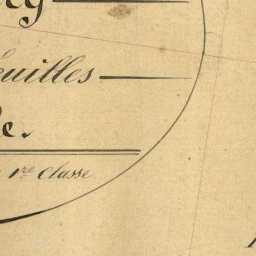 euilles
e.
1re Classe